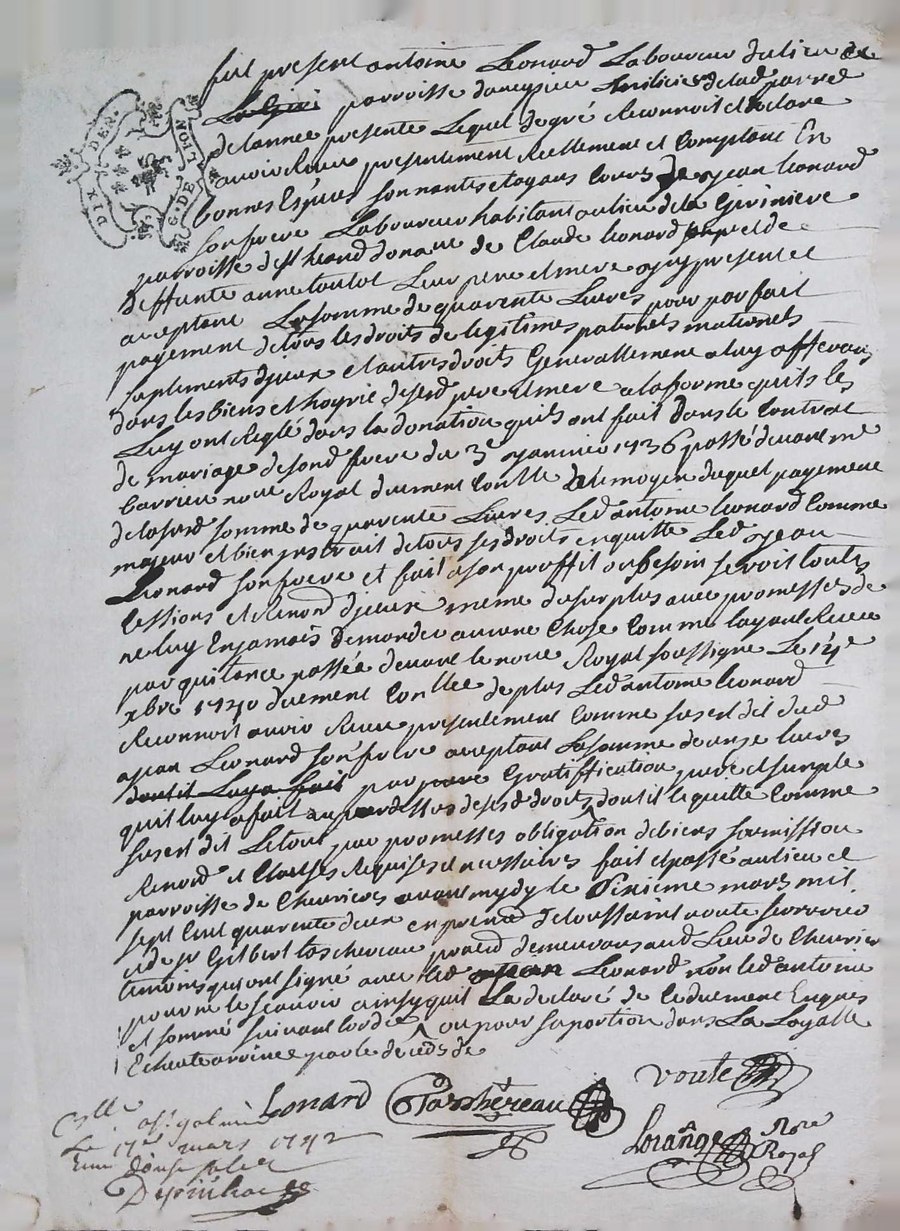 DIX DER.
G. DE LION
fut present antoine Leonard Laboureur du lieu de
parroisse milicier de lad parroe
de lannee presente Lequel de gré Reconnoit et declare
avoir Receu presentement Reellement et Comptant En
bonnes Espèces sonnantes et ayans cours de jean leonard
son frere Laboureur habitant au lieu de la
parroisse de st heand donaire de Claude leonard et de
deffunte anne toulot Leur pere et mere jcy present et
aceptant La somme de quarente Livres pour parfait
payement de tous les droits de legitimes paternels maternels
suplements d'jceux et autres droits Generallement a luy afferans
dans les biens et hoyrie desesd pere et mere a la forme quils les
Luy ont Reglé dans la donation quils ont fait Dans le Contrat
de mariage de sond frere du 3e janvier 1736 passé devant me
barrieu nore Royal duement Conllé et le moyen duquel payement
de lasusd somme de quarente Livres Led antoine leonard Comme
majeur et bien instruit de tous ses droits en quitte Led jean
Leonard son frere et fait a son proffit au besoin seroit toutes
Cessions et Renond d'jceux meme de surplus avec promesses de
ne luy En jamais Demander aucune Chose Comme layant Receu
par quitance passée devant le nore Royal soussigné Le 14e
xbre 1740 duement Conllée de plus Led antoine leonard
Reconnoit avoir Receu presentement Comme susest dit dud
jean Leonard son frere aceptant La somme de onze livres
dont il Luy a fait par Gratiffication pure et simple
quil luy a fait au par dessus desesd droits dont il le quitte Comme
susest dit Le tout par promesses obligation de biens soumission
Renond et Clauses Requises et necessaires fait et passé au lieu et
parroisse de Chevrieres avant mydy le sixieme mars mil
sept Cent quarente deux en presence de toussaint voute
et de sr Gilbert tachereau praticd demeurans aud Lieu de Chevrier
temoins qui ont signé avec led jean Leonard non led antoine
pour ne le scavoir ainsy quil La declaré de ce duement Enquis
et sommé suivant lordce ou pour sa portion dans La
Echeute arrivee par le deceds de
voute
Lonard Tachéreau
Lorange Nore Royal
Cllé a st galmier
Le 17e mars 1742